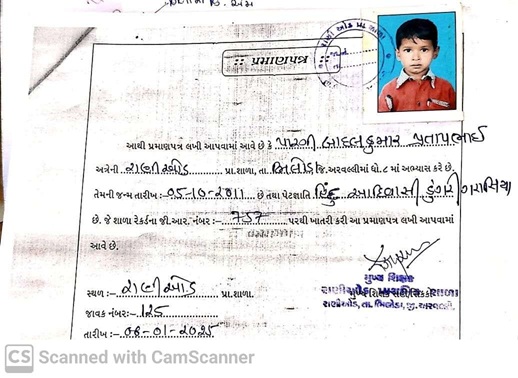 :: પ્રમાણપત્ર ::
આથી પ્રમાણપત્ર લખી આપવામાં આવે છે કે પારઘી બાદલકુમાર પ્રતાપભાઈ
અત્રેની રાણીઓડ પ્રા.શાળા, તા. ભિલોડા જિ.અરવલ્લીમાં ધો. ૮ માં અભ્યાસ કરે છે.
તેમની જન્મ તારીખ :- 05-10-2011 છે તથા પેટાજ્ઞાતિ હિન્દુ આદિવાસી ડુંગરી ગરાસિયા
છે. જે શાળા રેકર્ડના જી.આર. નંબર :- 757 પરથી ખાતરી કરી આ પ્રમાણપત્ર લખી આપવામાં
આવે છે.
સ્થળ :- રાણીઓડ પ્રા.શાળા.
જાવક નંબર:- 125
તારીખ :- 08-01-2025
મુખ્ય શિક્ષક
રાણીઓડ, તા. ભિલોડા, જી.અરવલ્લી.
CS Scanned with CamScanner